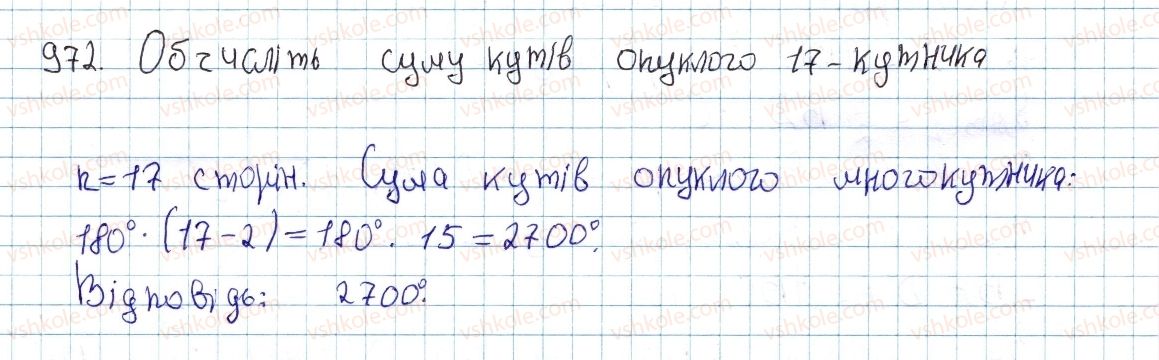 972. Обчисліть суму кутів опуклого 17-кутника
n=17 сторін. Сума кутів опуклого многокутника:
180°·(17-2)=180°·15=2700°.
Відповідь: 2700°.